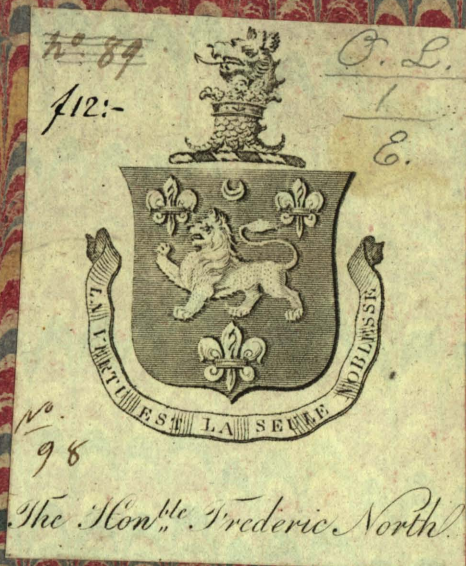 no 89
O. L.
f12:-
1
E.
LA VERTU EST LA SEULE NOBLESSE
No.
98
The Hon,,ble Frederic North.